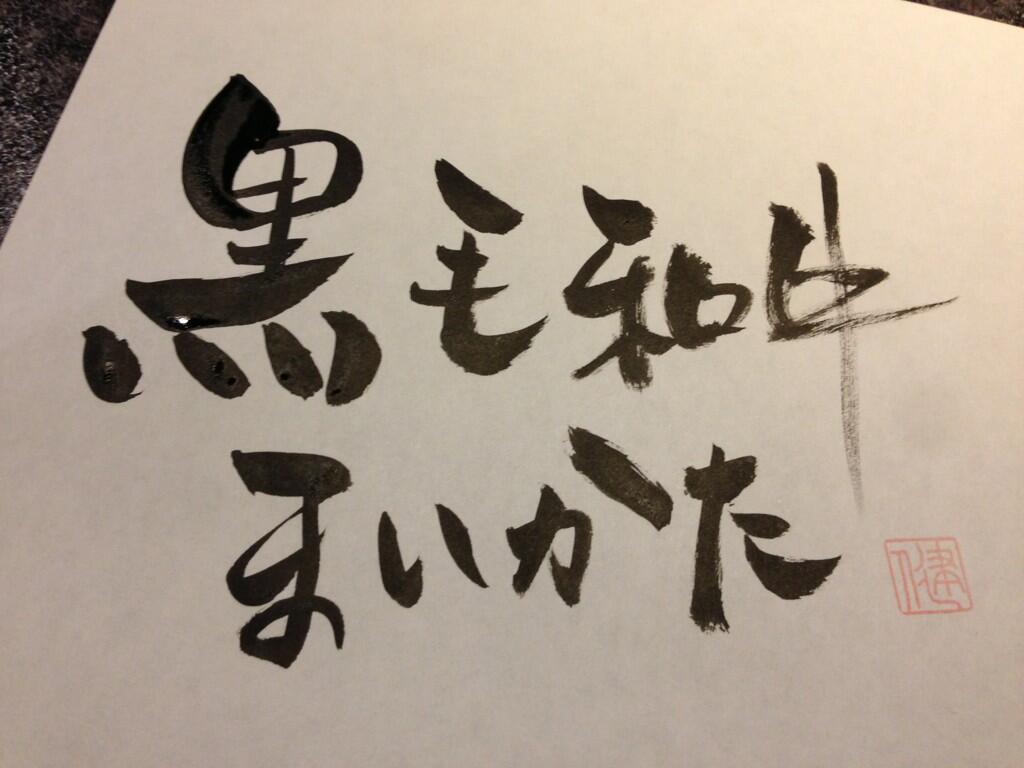 黒毛和牛
まいかた
健